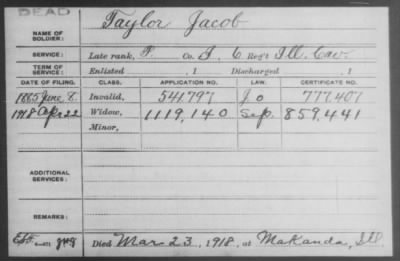 DEAD
NAME OF SOLDIER: Taylor Jacob
SERVICE: Late rank, P. Co. I, 6 Reg't Ill. Cav.
TERM OF SERVICE: Enlisted , 1 Discharged , 1
DATE OF FILING. CLASS. APPLICATION NO. LAW. CERTIFICATE NO.
1885 June 8. Invalid, 541,797 777.407
1918 Apr 22 Widow, 1119,140 Sep. 859,441
Minor,
ADDITIONAL SERVICES:
REMARKS:
Died Mar 23, 1918, at Makanda, Ill.